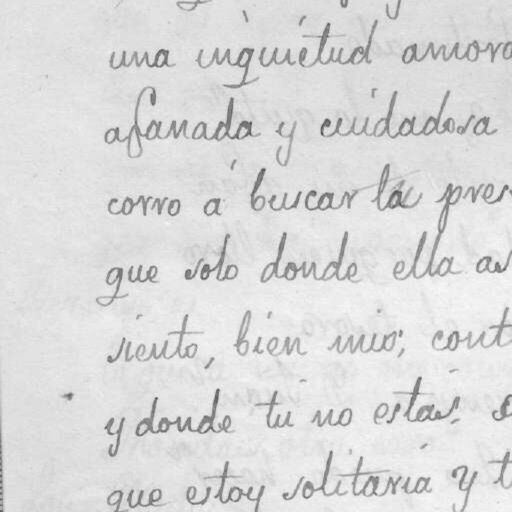 una inquietud amoro
afanada y cuidadosa
corro á buscar la pres
que solo donde ella as
siento, bien mio; cont
y donde tú no estas.
que estoy solitaria y t